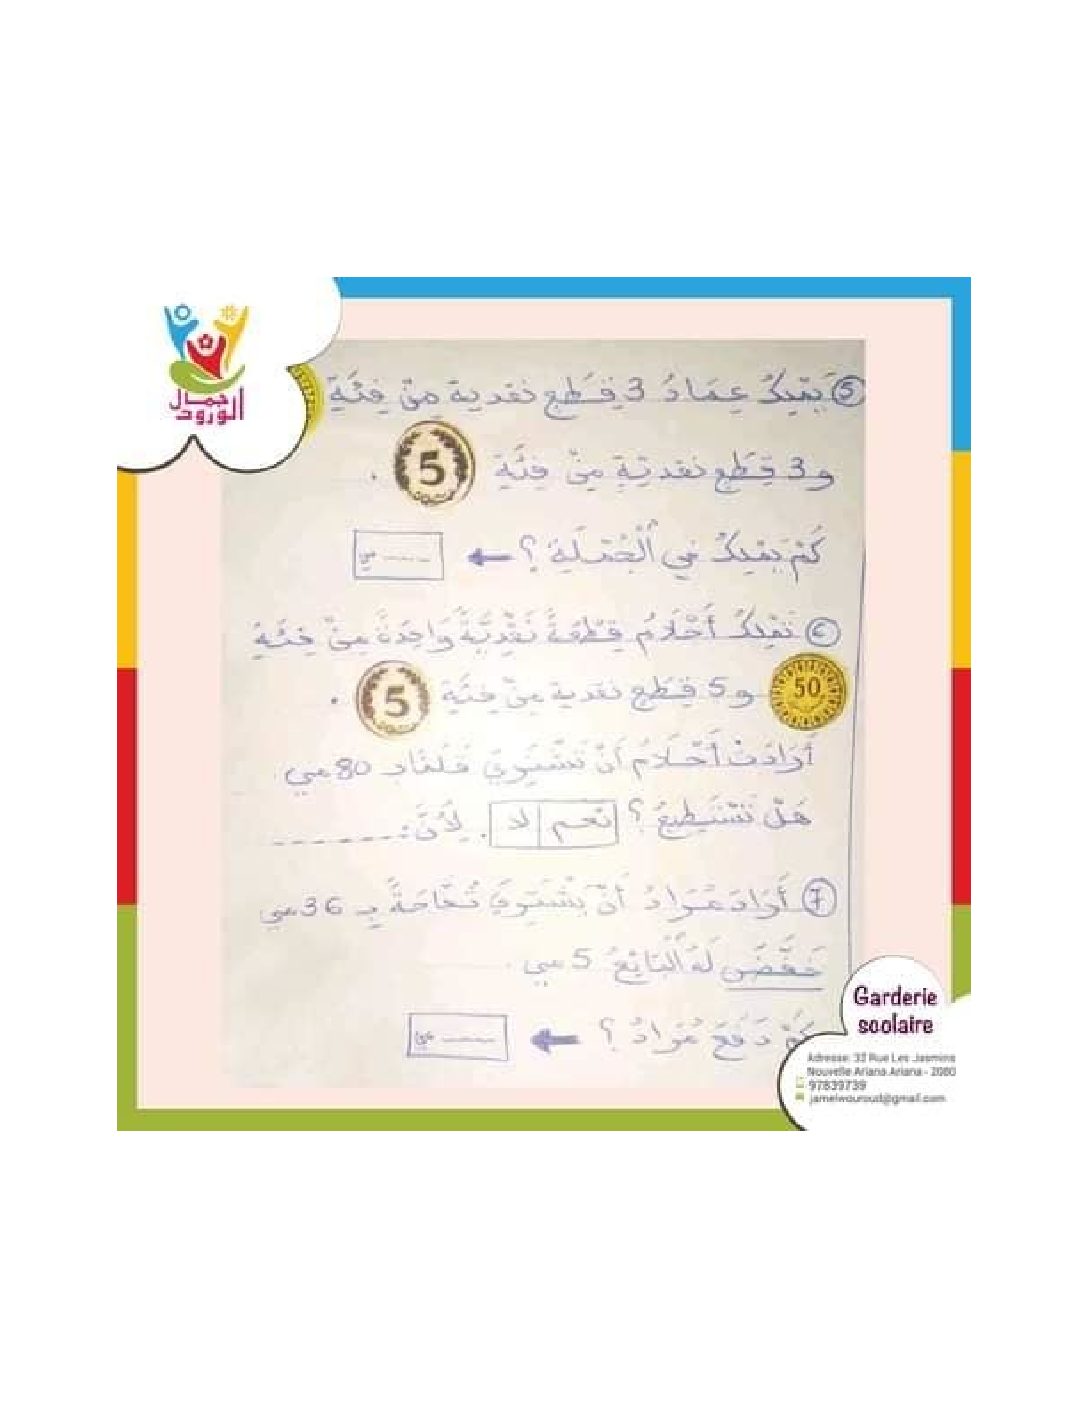 جمال الورود
⑤ يَمْلِكُ عِمَادُ 3 قِطَعٍ نقدية مِنْ فِئَةِ
و 3 قِطَعٍ نقديّةٍ مِنْ فِئَةِ 5 .
كَمْ يَمْلِكُ فِي اُلْجُمْلَةِ ؟ ← ---- مي
⑥ تَمْلِكُ أَحْلَامُ قِطْعَةً نَقْدِيَّةً وَاحِدَةً مِنْ فِئَةِ
50 و 5 قِطَعٍ نقدية مِنْ فِئَةِ 5 .
أَرَادَتْ أَحْلَامُ أَنْ تَشْتَرِيَ 80 مي
هَلْ تَسْتَطِيعُ ؟ نعم لا . لِأَنَّ : --------
⑦ أَرَادَ مُرَادُ أَنْ يَشْتَرِيَ تُفَّاحَةً بِـ 36 مي
خَفَّضَ لَهُ اَلْبَائِعُ 5 مي .
كَمْ دَفَعَ مُرَادُ ؟ ← ---- مي
Garderie
scolaire
Adresse: 32 Rue Les Jasmins
Nouvelle Ariana Ariana - 2080
97839739
jamelwouroud@gmail.com